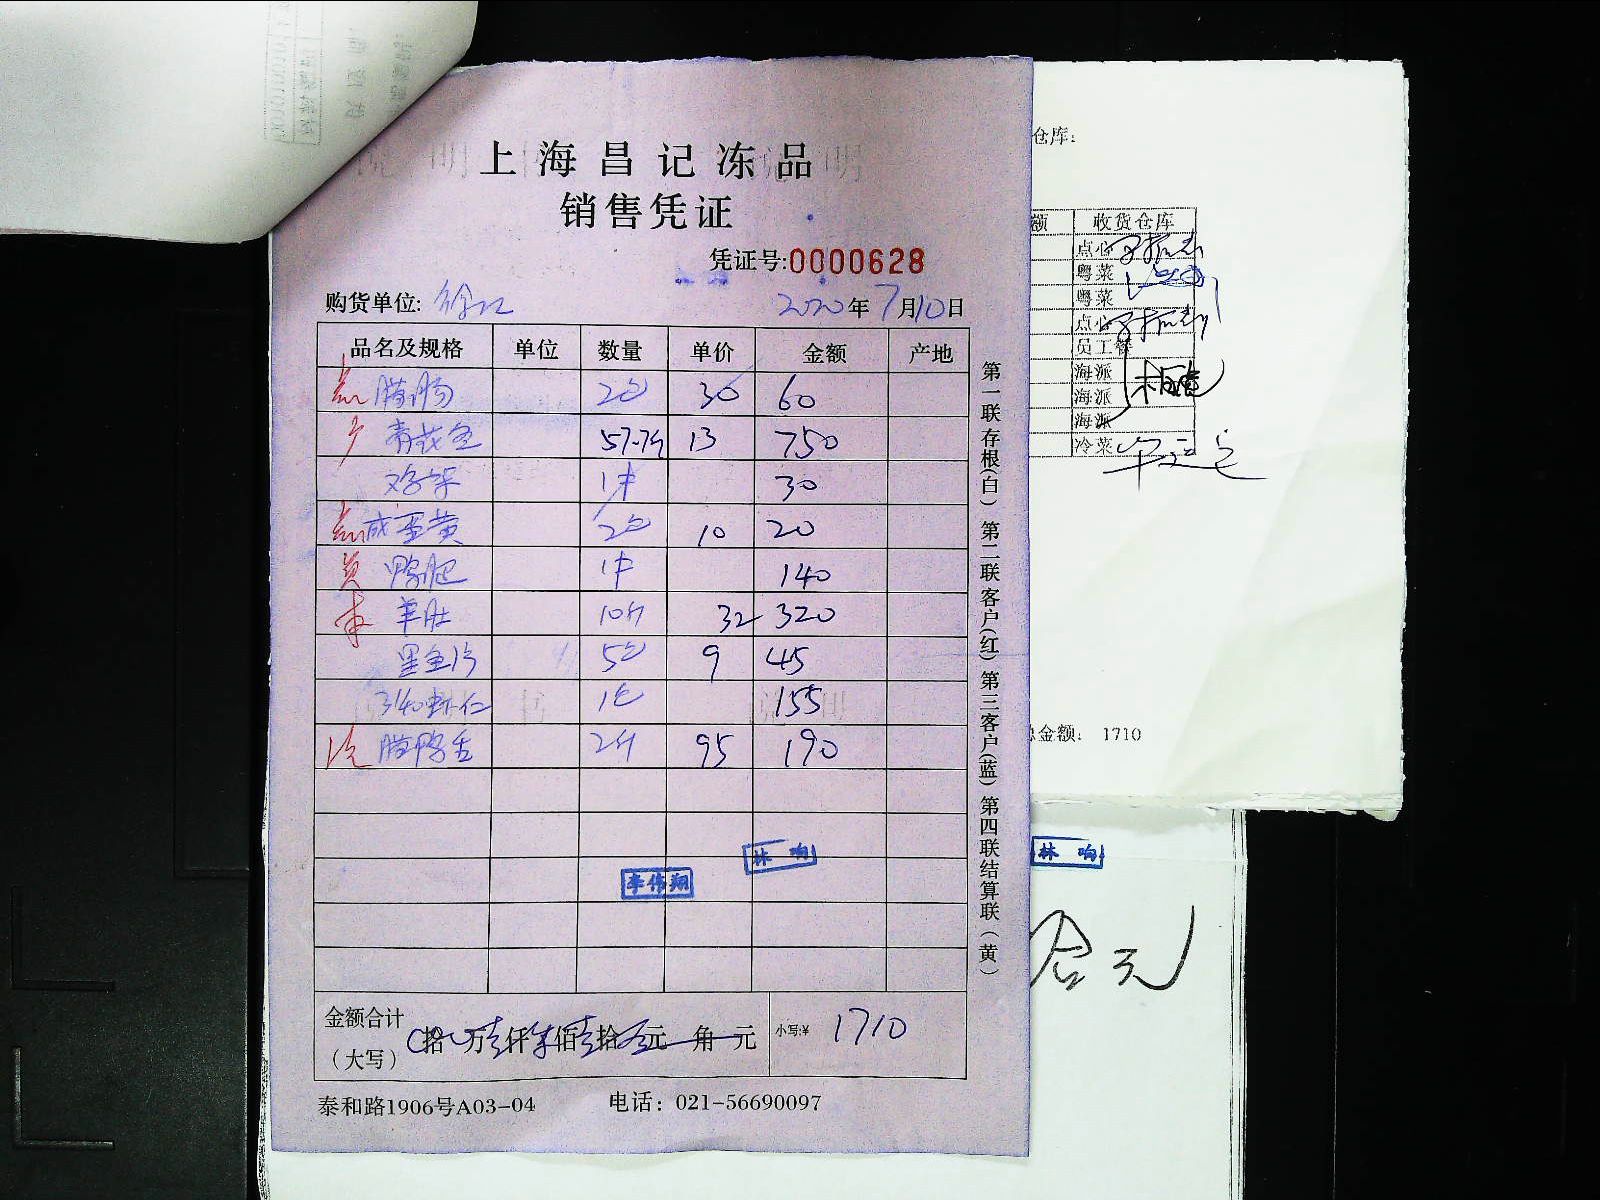 上海昌记冻品
销售凭证
凭证号:0000628
购货单位: 徐汇 2020年7月10日
品名及规格 单位 数量 单价 金额 产地
点 腊肠 2包 30 60
青花鱼 57.7斤 13 750
鸡架 1件 30
点 咸蛋黄 2包 10 20
员 鸭肫 1件 140
羊肚 10斤 32 320
黑鱼片 5包 9 45
3140虾仁 1包 155
冷 腊鸭舌 2斤 95 190
林响
李伟翔
金额合计
(大写) 拾 万壹仟柒佰壹拾 元 角 元 小写:¥ 1710
泰和路1906号A03-04 电话：021-56690097
第一联存根(白) 第二联客户(红) 第三客户(蓝) 第四联结算联(黄)
仓库:
额 收货仓库
点心
粤菜
粤菜
点心
员工餐
海派
海派
海派
冷菜
总金额: 1710
林响